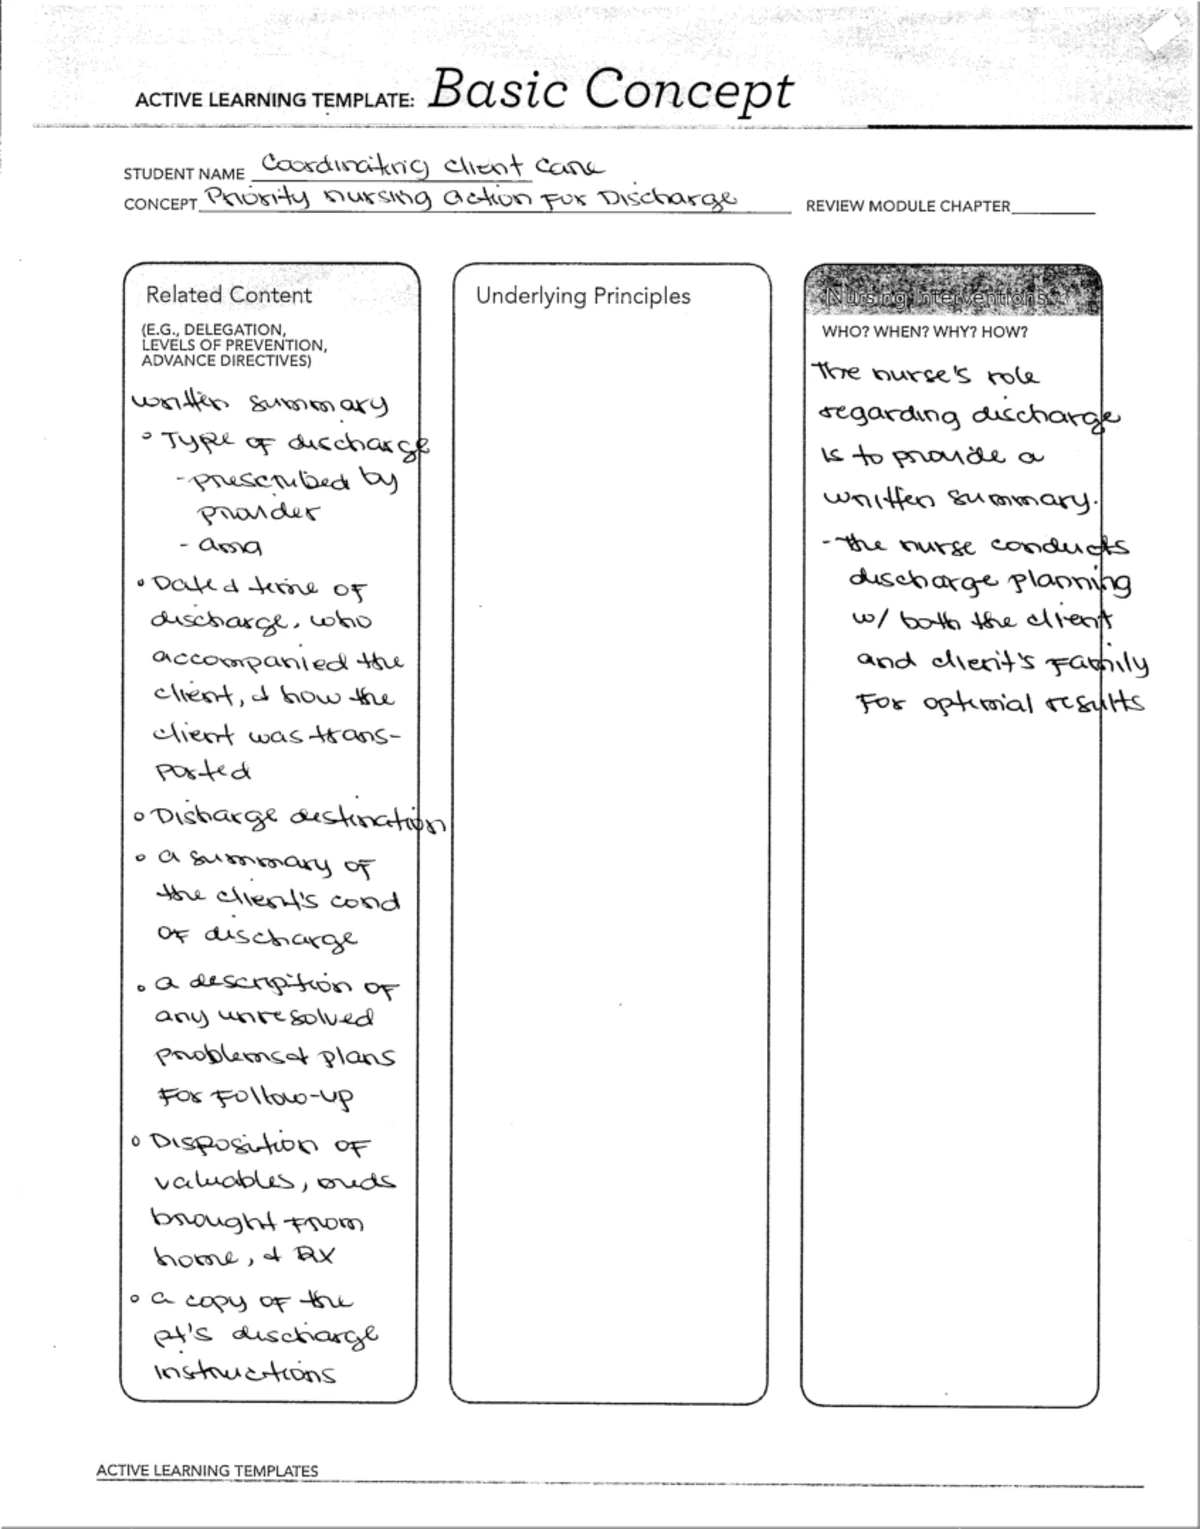 ACTIVE LEARNING TEMPLATE: Basic Concept
STUDENT NAME Coordinating client care
CONCEPT Priority nursing action for Discharge
REVIEW MODULE CHAPTER
Related Content
(E.G., DELEGATION,
LEVELS OF PREVENTION,
ADVANCE DIRECTIVES)
written summary
° Type of discharge
- prescribed by
provider
- ama
° Date & time of
discharge, who
accompanied the
client, & how the
client was trans-
ported
° Disharge destination
° a summary of
the client's cond
of discharge
° a description of
any unresolved
problems & plans
for follow-up
° Disposition of
valuables, meds
brought from
home, & RX
° a copy of the
pt's discharge
instructions
Underlying Principles
Nursing Interventions
WHO? WHEN? WHY? HOW?
The nurse's role
regarding discharge
is to provide a
written summary.
- the nurse conducts
discharge planning
w/ both the client
and client's family
for optimal results
ACTIVE LEARNING TEMPLATES